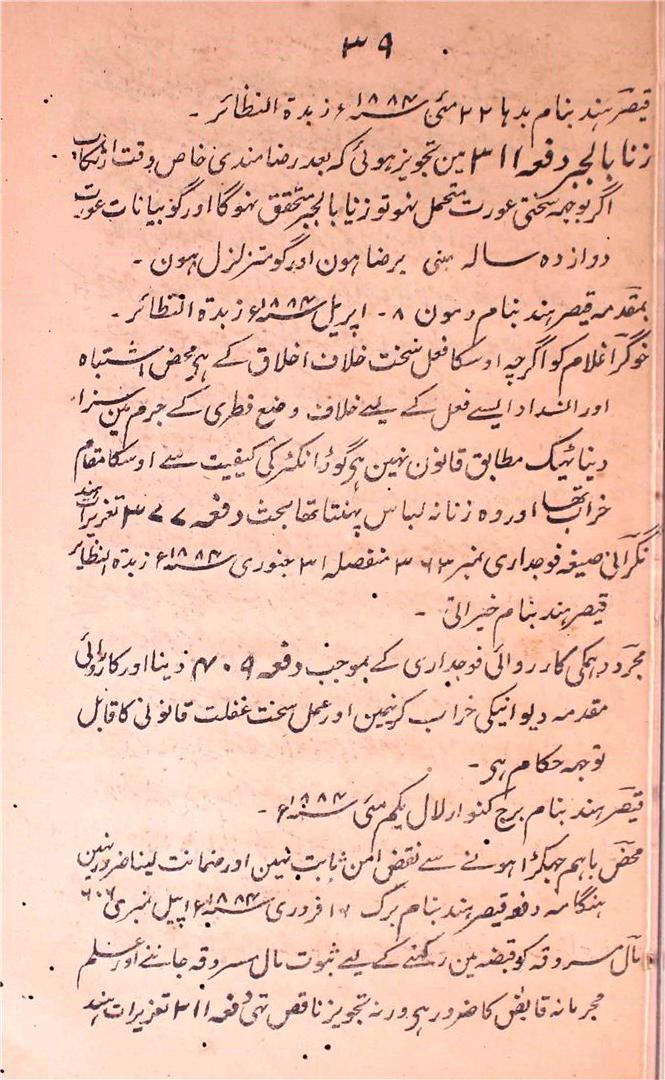 ۳۹
قیصر ہند بنام بدہا ۲۲ مئی ۱۸۸۴ء زبدۃ النظائر ۔
زنا بالجبر دفعہ ۳۱۱ مین تجویز ہوئی کہ بعد رضا مندی خاص وقت ارتکاب
اگر بوجہ سختی عورت متحمل نہو تو زنا بالجبر متحقق نہوگا اور گو بیانات عورت
دوازدہ سالہ مبنی برضا ہون اور گو متزلزل ہون ۔
بمقدمہ قیصر ہند بنام دمون ۸ ۔ اپریل ۱۸۸۴ء زبدۃ النظائر ۔
خوگر اغلام کو اگرچہ اوسکا فعل سخت خلاف اخلاق کے ہی محض اشتباہ
اور انسداد ایسے فعل کے لیے خلاف وضع فطری کے جرم مین سزا
دینا ٹھیک مطابق قانون نہین ہی گو ڈاکٹر کی کیفیت سے اوسکا مقام
خراب تھا اور وہ زنانہ لباس پہنتا تھا بحث دفعہ ۳۷۷ تعزیرات ہند
نگرانی صیغہ فوجداری نمبر ۳۶۳ منفصلہ ۳۱ جنوری ۱۸۸۴ء زبدۃ النظائر
قیصر ہند بنام خیراتی ۔
مجرد دہمکی کارروائی فوجداری کے بموجب دفعہ ۴۰۹ دینا اور کارروائی
مقدمہ دیوانیکی خراب کرنیمین اور عمل سخت غفلت قانونی کا قابل
توجہ حکام ہی ۔
قیصر ہند بنام برج کنوار لال یکم مئی ۱۸۸۴ء ۔
محض باہم جھگڑا ہونے سے نقض امن ثابت نہین اور ضمانت لینا ضرور نہین
ہنگامہ دفعہ قیصر ہند بنام برگ ۱۶ فروری ۱۸۸۴ء اپیل نمبری ۶۰۶
مال مسروقہ کو قبضہ مین رکہنے کے لیے ثبوت مال مسروقہ جاننے اور علم
مجرمانہ قابض کا ضرور ہی ورنہ تجویز ناقص تہی دفعہ ۳۱۱ تعزیرات ہند